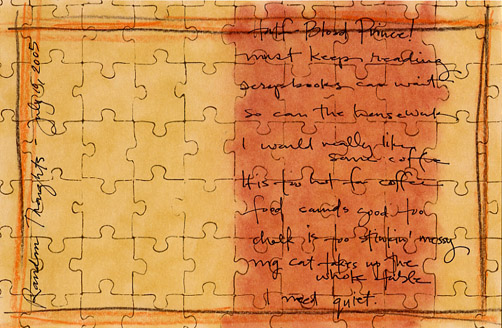 Random Thoughts - July 19, 2005
Half Blood Prince!
must keep reading
scrapbooks can wait
so can the housework
I would really like
some coffee
It is too hot for coffee
food sounds good too
chalk is too stinkin' messy
my cat takes up the
whole table
I need quiet.